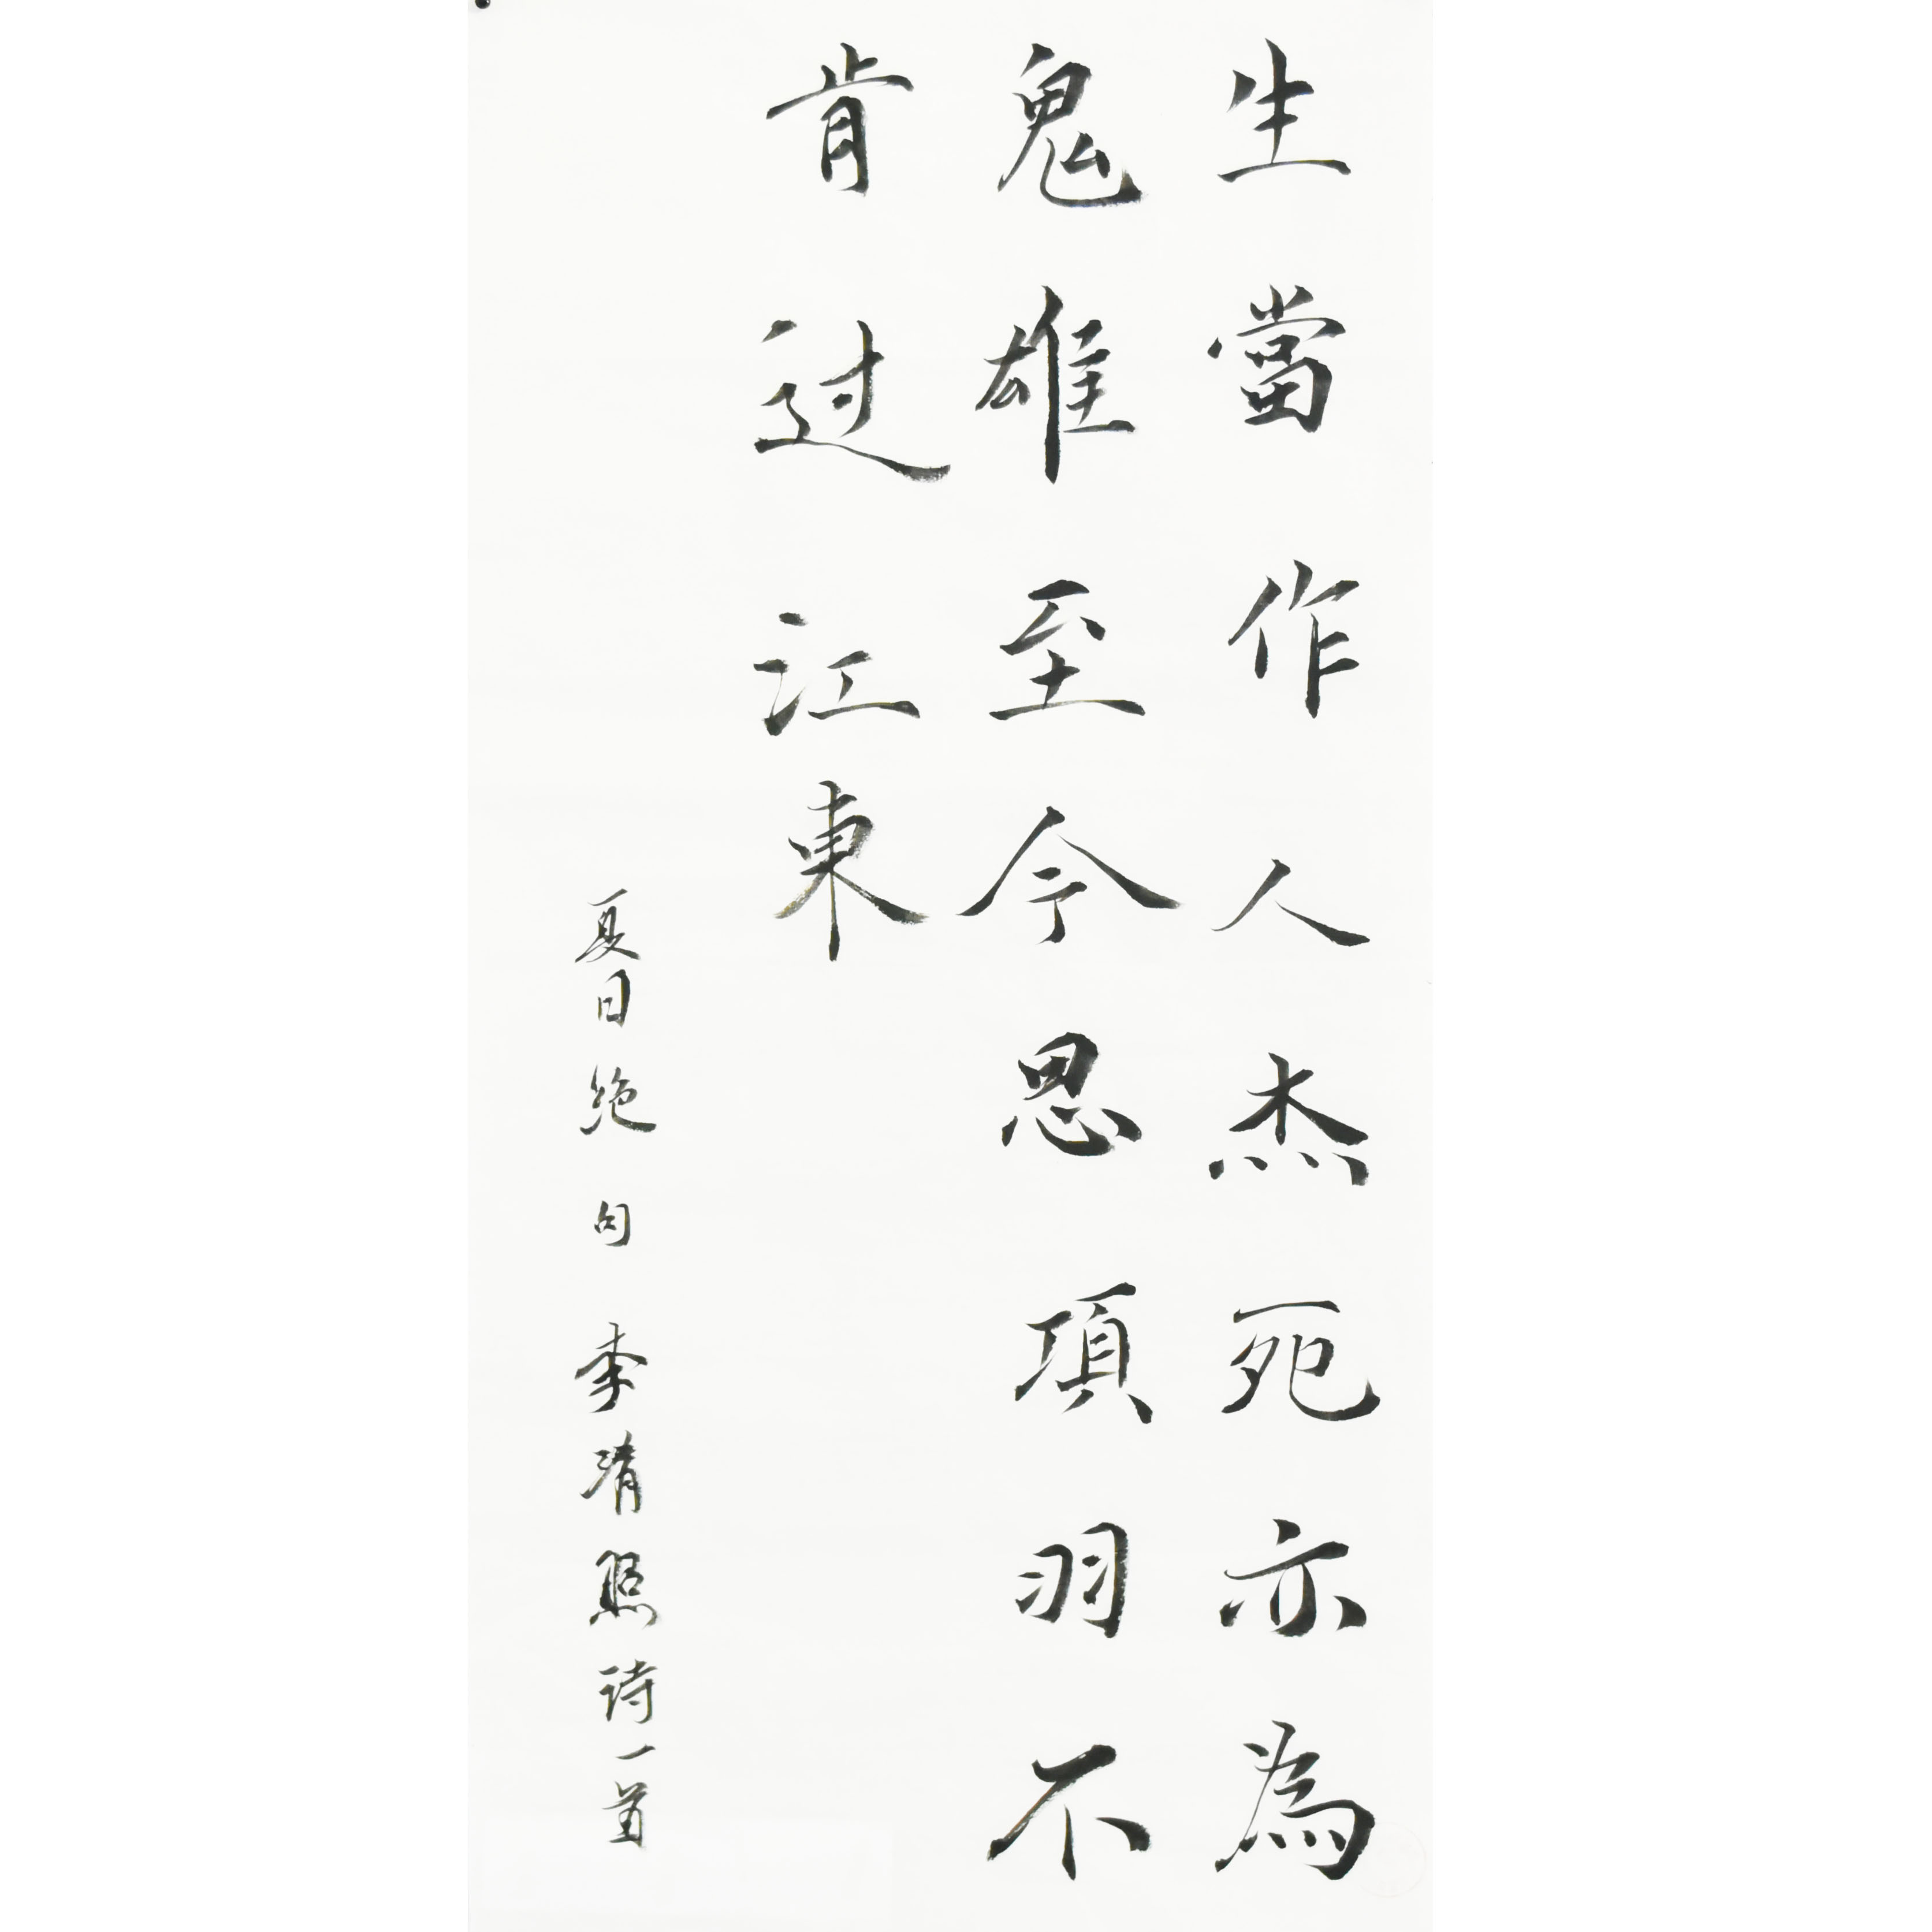 生當作人杰死亦為
鬼雄至今思項羽不
肯过江東
夏日绝句 李清照詩一首